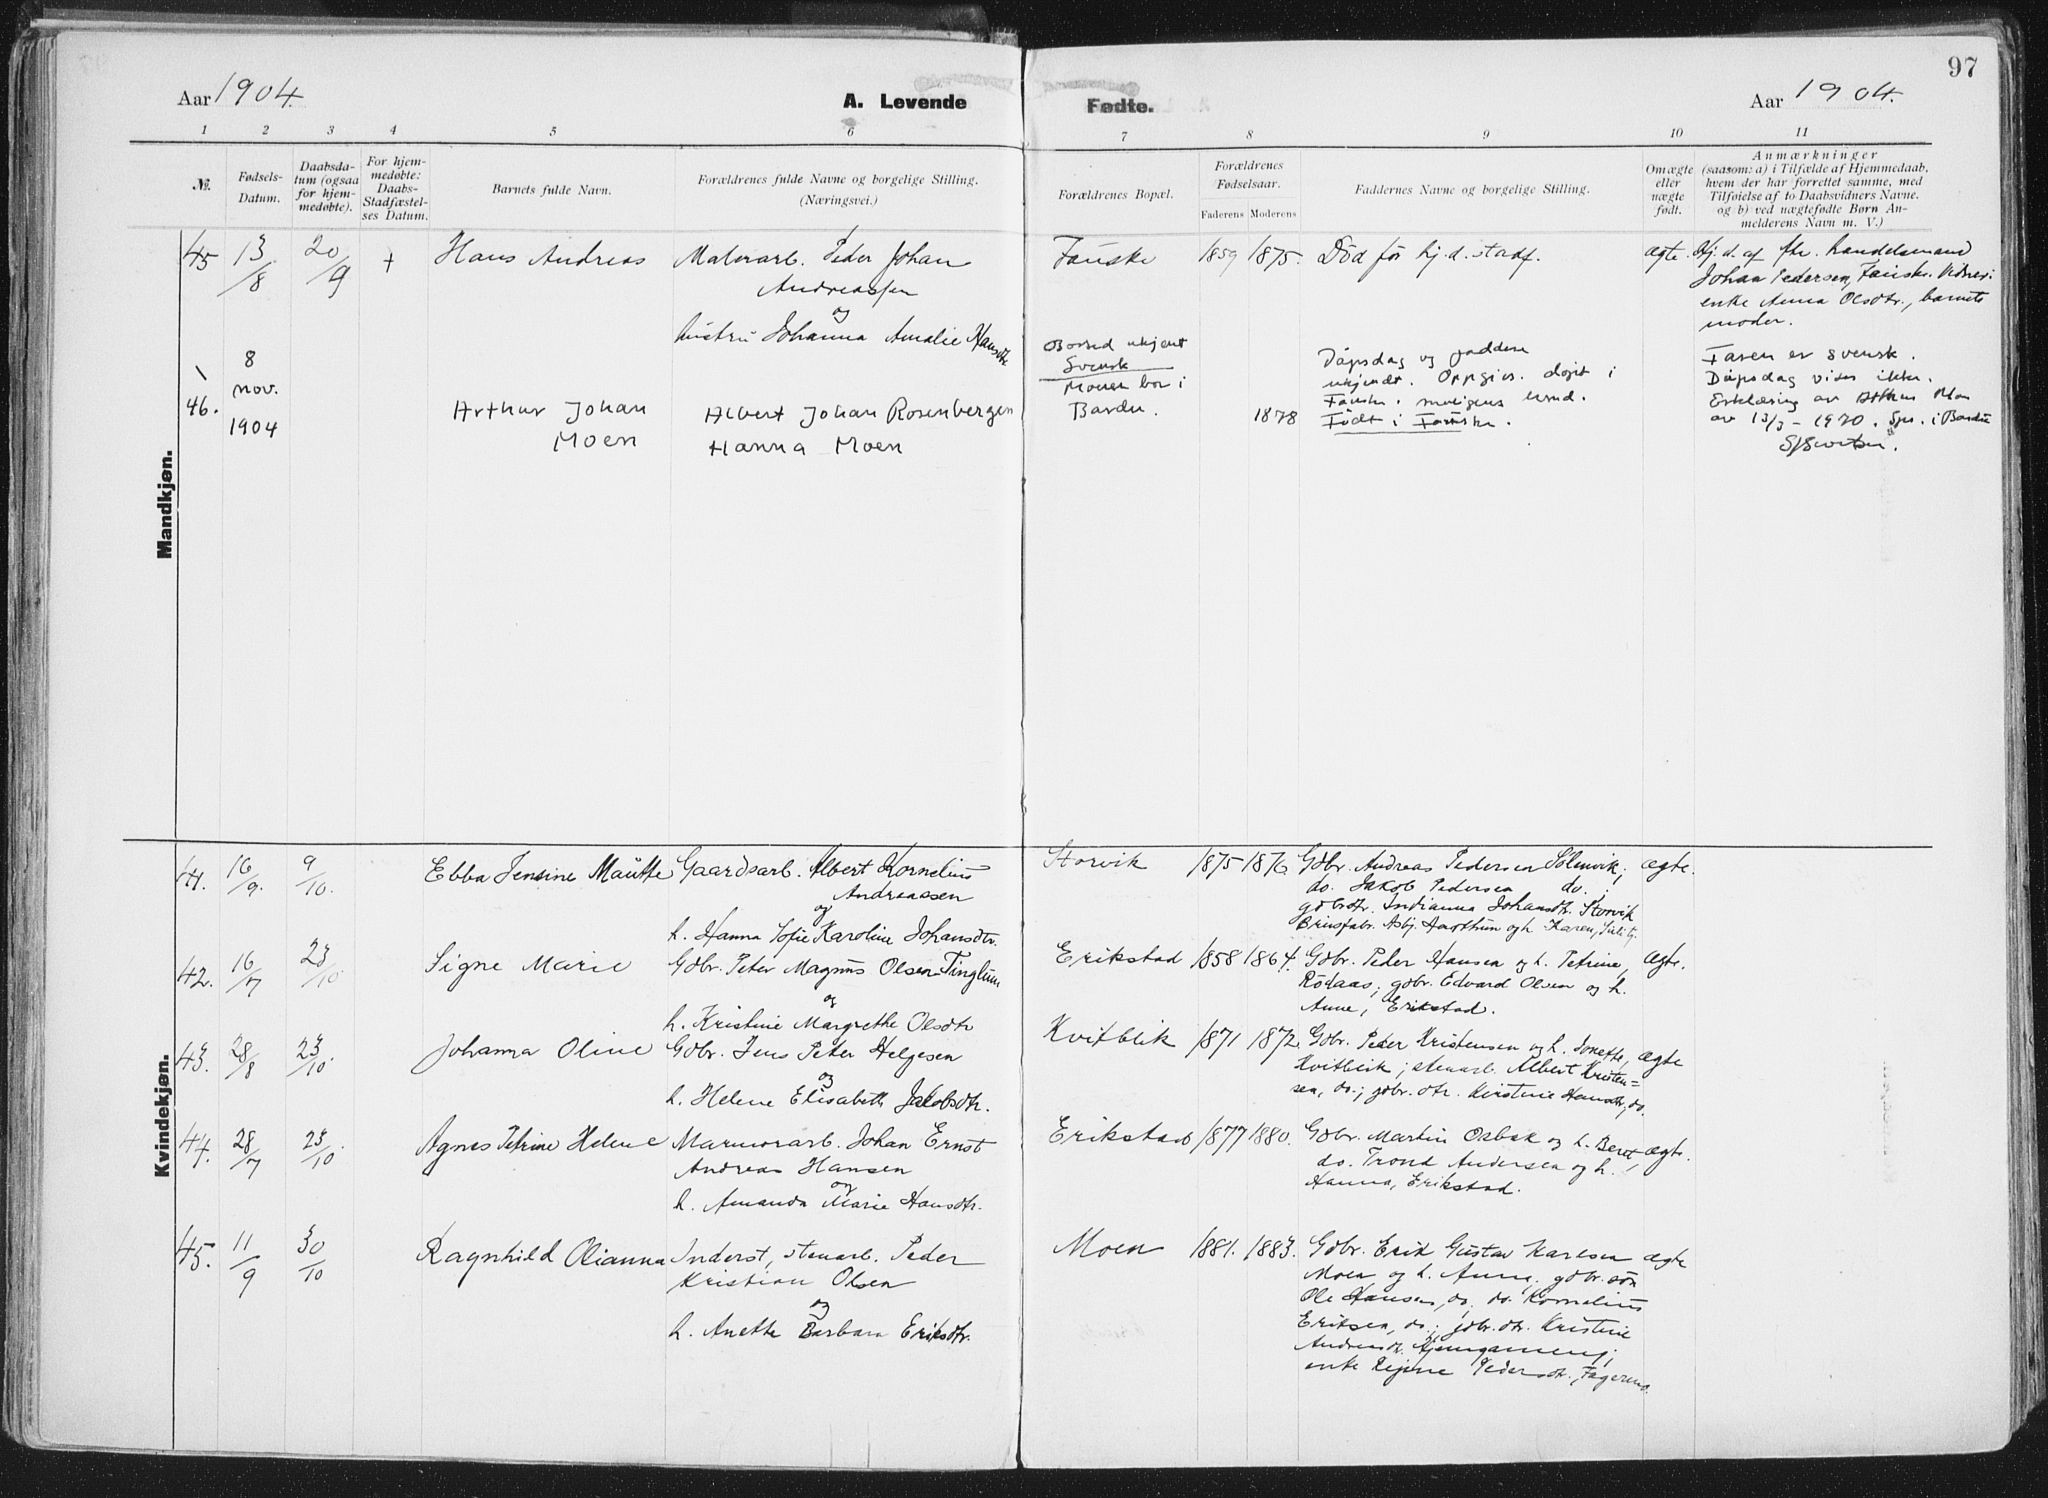 97
Aar 1904.
A. Levende
Fødte.
Aar 1904.
1 2 3 4 5 6 7 8 9 10 11
№.
Fødsels-
Datum.
Daabsda-
tum (ogsaa
for hjem-
medøbte).
For hjem-
medøbte:
Daabs-
Stadfæstel-
ses Datum.
Barnets fulde Navn.
Forældrenes fulde Navne og borgelige Stilling.
(Næringsvei.)
Forældrenes Bopæl.
Forældrenes
Fødselsaar.
Faderens Moderens
Faddernes Navne og borgelige Stilling.
Om ægte
eller
uægte
født.
Anmærkninger
(saasom: a) i Tilfælde af Hjemmedaab,
hvem der har forrettet samme, med
Tilføielse af to Daabsvidners Navne.
og b) ved uægtefødte Børn An-
melderens Navn m. V.)
Mandkjøn.
45 13/8 20/9 +
Hans Andreas
Peder Johan
Andreassen
og
hustru Johanna Amalie Hansdtr.
Fauske
1859 1875.
Död før hj. d. stadf.
ægte.
Hj. d. af fhv. handelsmand
Johan Pedersen, Fauske. Vidner:
enke Anna Olsdtr., barnets
moder.
46.
8
nov.
1904
Arthur Johan
Moen
Albert Johan Rosenbergen
Hanna Moen
Bosted ukjent
Svensk
Moren bor i
Bardu.
1878
Dåpsdag og faddere
ukjendt. Oppgis døpt i
Fauske
Født i Fauske.
Faren er svensk.
Dåpsdag vides ikke.
Erklæring av
av 13/3 - 1920. i Bardu
Kvindekjøn.
41. 16/9. 9/10.
Ebba Jensine Mautte
Gaardsarb. Albert Kornelius
Andreassen
og
h. Hanna Sofie Karoline Johansdtr.
Storvik
1875 1876.
Gdbr. Andreas Pedersen Solenvik;
do. Jakob Pedersen do.;
gdbrdtr. Indianna Johansdtr. Storvik
ægte.
42. 16/7 23/10
Signe Marie
Gdbr. Peter Magnus Olsen Tinglum
og
h. Kristine Margrethe Olsdtr
Erikstad
1858 1864.
Gdbr. Peder Hansen og h. Petrine,
Rödaas; gdbr. Edvard Olsen og h.
Anne, Erikstad.
ægte.
43. 28/8 23/10.
Johanna Oline
Gdbr. Jens Peter Helgesen
og
h. Helene Elisabeth Jakobsdtr.
Kvitblik
1871 1872.
Gdbr. Peder Kristensen og h. Jonette,
Kvitblik; stenarb. Albert Kristen=
sen, do.; gdbr. dtr. Kirstine Hansdtr, do.
ægte
44. 28/7 23/10.
Agnes Petrine Helene
Marmorarb. Johan Ernst
Andreas Hansen
og
h. Amanda Marie Hansdtr.
Erikstad
1877 1880.
Gdbr. Martin Osbak og h. Beret,
do. Trond Andersen og h.
Hanna, Erikstad.
ægte.
45. 11/9 30/10
Ragnhild Olianna
Inderst, stenarb. Peder
Kristian Olsen
og
h. Anette Barbara Eriksdtr.
Moen
1881. 1883.
Gdbr. Erik Gustav Karlsen
Moen og h. Anna; gdbr. sön
Ole Hansen, do. do. Kornelius
Eriksen, do.; gdbr. dtr. Kristine
enke Regine Pedersdtr., Fagermo.
ægte